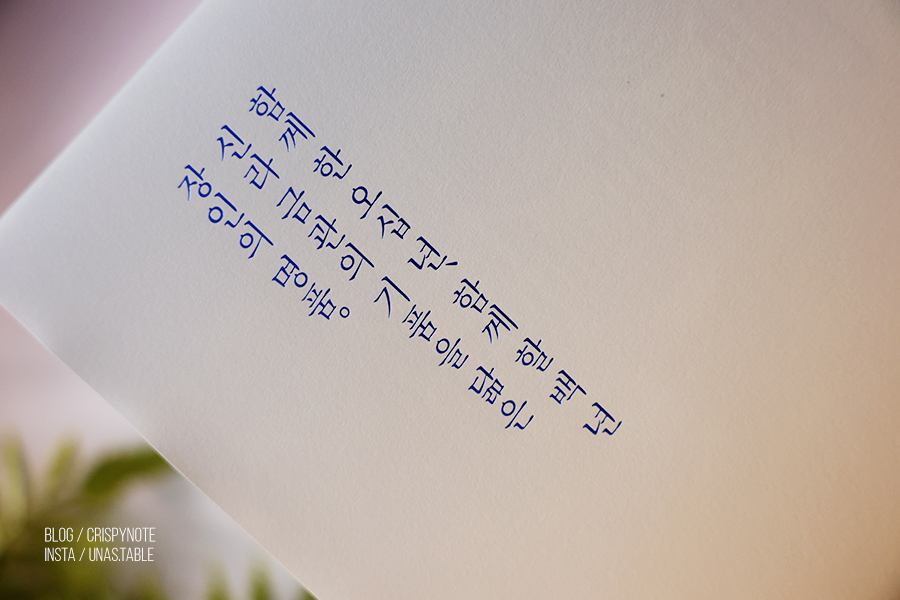 함께 한 오십 년、함께 할 백 년
신라 금관의 기품을 닮은
장인의 명품。
BLOG / CRISPYNOTE
INSTA / UNAS.TABLE